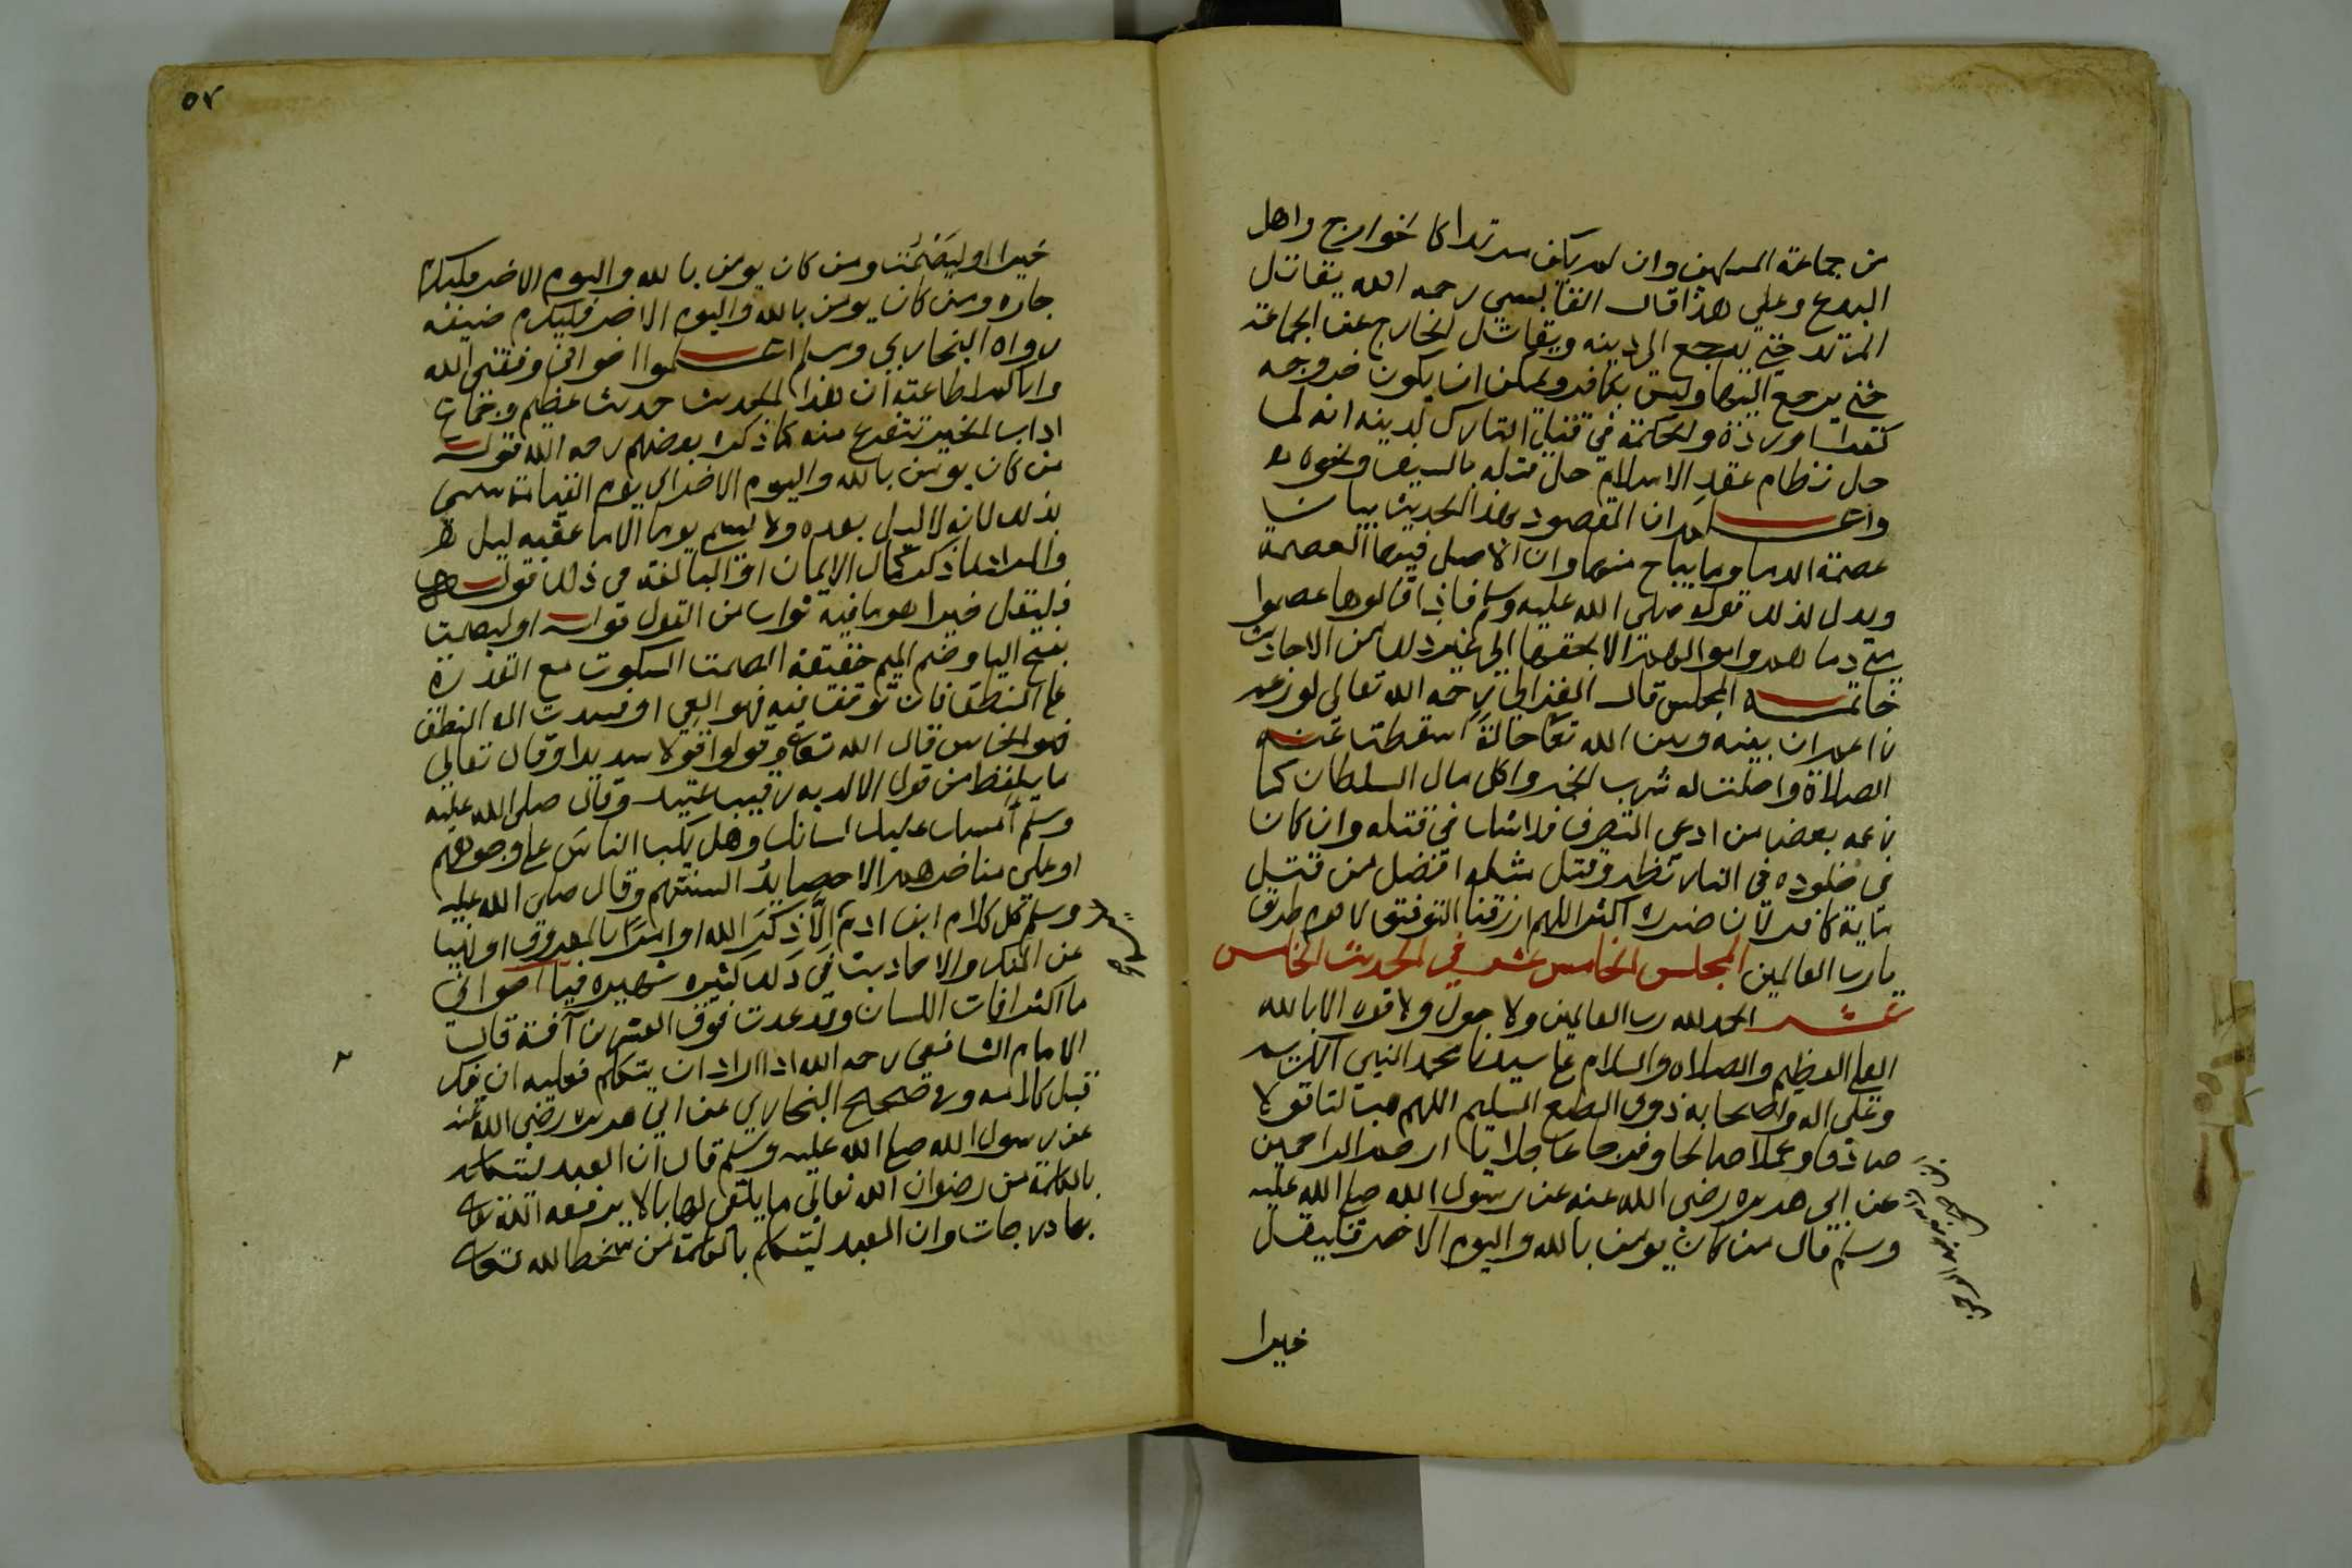 من جماعة المسلمين وان لم يكن مرتدا كالخوارج واهل
البدع وعلي هذا قال القابسي رحمه الله يقاتل
المرتد حتي يرجع الي دينه ويقاتل الخارج عن الجماعة
حتي يرجع اليها وليس بكافر ويمكن ان يكون خروجه
كفرا او ردة والحكمة في قتل التارك لدينه انه لما
حل نظام عقد الاسلام حل قتله بالسيف ونحوه
واعلم ان المقصود بهذا الحديث بيان
عصمة الدما وما يباح منها وان الاصل فيها العصمة
ويدل لذلك قوله صلى الله عليه وسلم فاذا قالوها عصموا
مني دماهم واموالهم الا بحقها الي غير ذلك من الاحاديث
خاتمه المجلس قال الغزالي رحمه الله تعالى لو زعم
زاعم ان بينه وبين الله تعا حالة اسقطت عنه
الصلاة واحلت له شرب الخمر واكل مال السلطان كما
زعمه بعض من ادعى التصوف فلا شك في قتله وان كان
في خلوده في النار نظر وقتل مثله افضل من قتل
ماية كافر لان ضرره اكثر اللهم ارزقنا التوفيق لاقوم طريق
يارب العالمين المجلس الخامس عشر في الحديث الخامس
عشر الحمد لله رب العالمين ولا حول ولا قوه الا بالله
العلي العظيم والصلاه والسلام على سيدنا محمد النبي الكريم
وعلى اله واصحابه ذوي الطبع السليم اللهم هب لنا قولا
صادقا وعملا صالحا وفرجا عاجلا يا ارحم الراحمين
عن ابي هريره رضي الله عنه عن رسول الله صلى الله عليه
وسلم قال من كان يومن بالله واليوم الاخر فليقل
خيرا
٥٧
خيرا او ليَصْمُت ومن كان يومن بالله واليوم الاخر فليكرم
جاره ومن كان يومن بالله واليوم الاخر فليكرم ضيفه
رواه البخاري ومسلم اعلموا اخواني وفقني الله
واياكم لطاعته ان هذا الحديث حديث عظيم وجماع
اداب الخير تتفرع منه كما ذكره بعضهم رحمه الله قوله
من كان يومن بالله واليوم الاخر اي يوم القيامة سمي
بذلك لانه لا ليل بعده ولا يسمى يوما الا ما عقبه ليل
والمراد بما ذكر كمال الايمان او المبالغة في ذلك قوله
فليقل خيرا هو ما فيه ثواب من القول قوله او ليصمت
بفتح اليا وضم الميم حقيقة الصمت السكوت مع القدرة
على النطق فان توقفا فيه فهو العي او فسدت الة النطق
فهو الخرس قال الله تعالى وقولوا قولا سديدا وقال تعالى
ما يلفظ من قول الا لديه رقيب عتيد وقال صلى الله عليه
وسلم امسك عليك لسانك وهل يكب الناس على وجوههم
او على مناخرهم الا حصايد السنتهم وقال صلى الله عليه
وسلم كل كلام ابن ادم الا ذكر الله او امرا بالمعروف او نهيا
عن المنكر والاحاديث في ذلك كثيره شهيره فيا اخواني
ما اكثر افات اللسان وقد عدت فوق العشرين آفة قال
الامام الشافعي رحمه الله اذا اراد ان يتكلم فعليه ان يفكر
قبل كلامه وفي صحيح البخاري عن ابي هريره رضي الله عنه
عن رسول الله صلى الله عليه وسلم قال ان العبد ليتكلم
بالكلمة من رضوان الله تعالي ما يلقي لها بالا يرفعه الله تعالى
بها درجات وان العبد ليتكلم بالكلمة من سخط الله تعالى